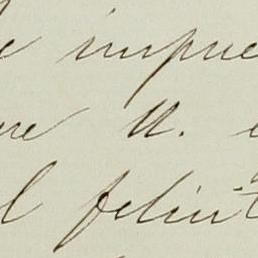 e impue
re U. e
l felicit